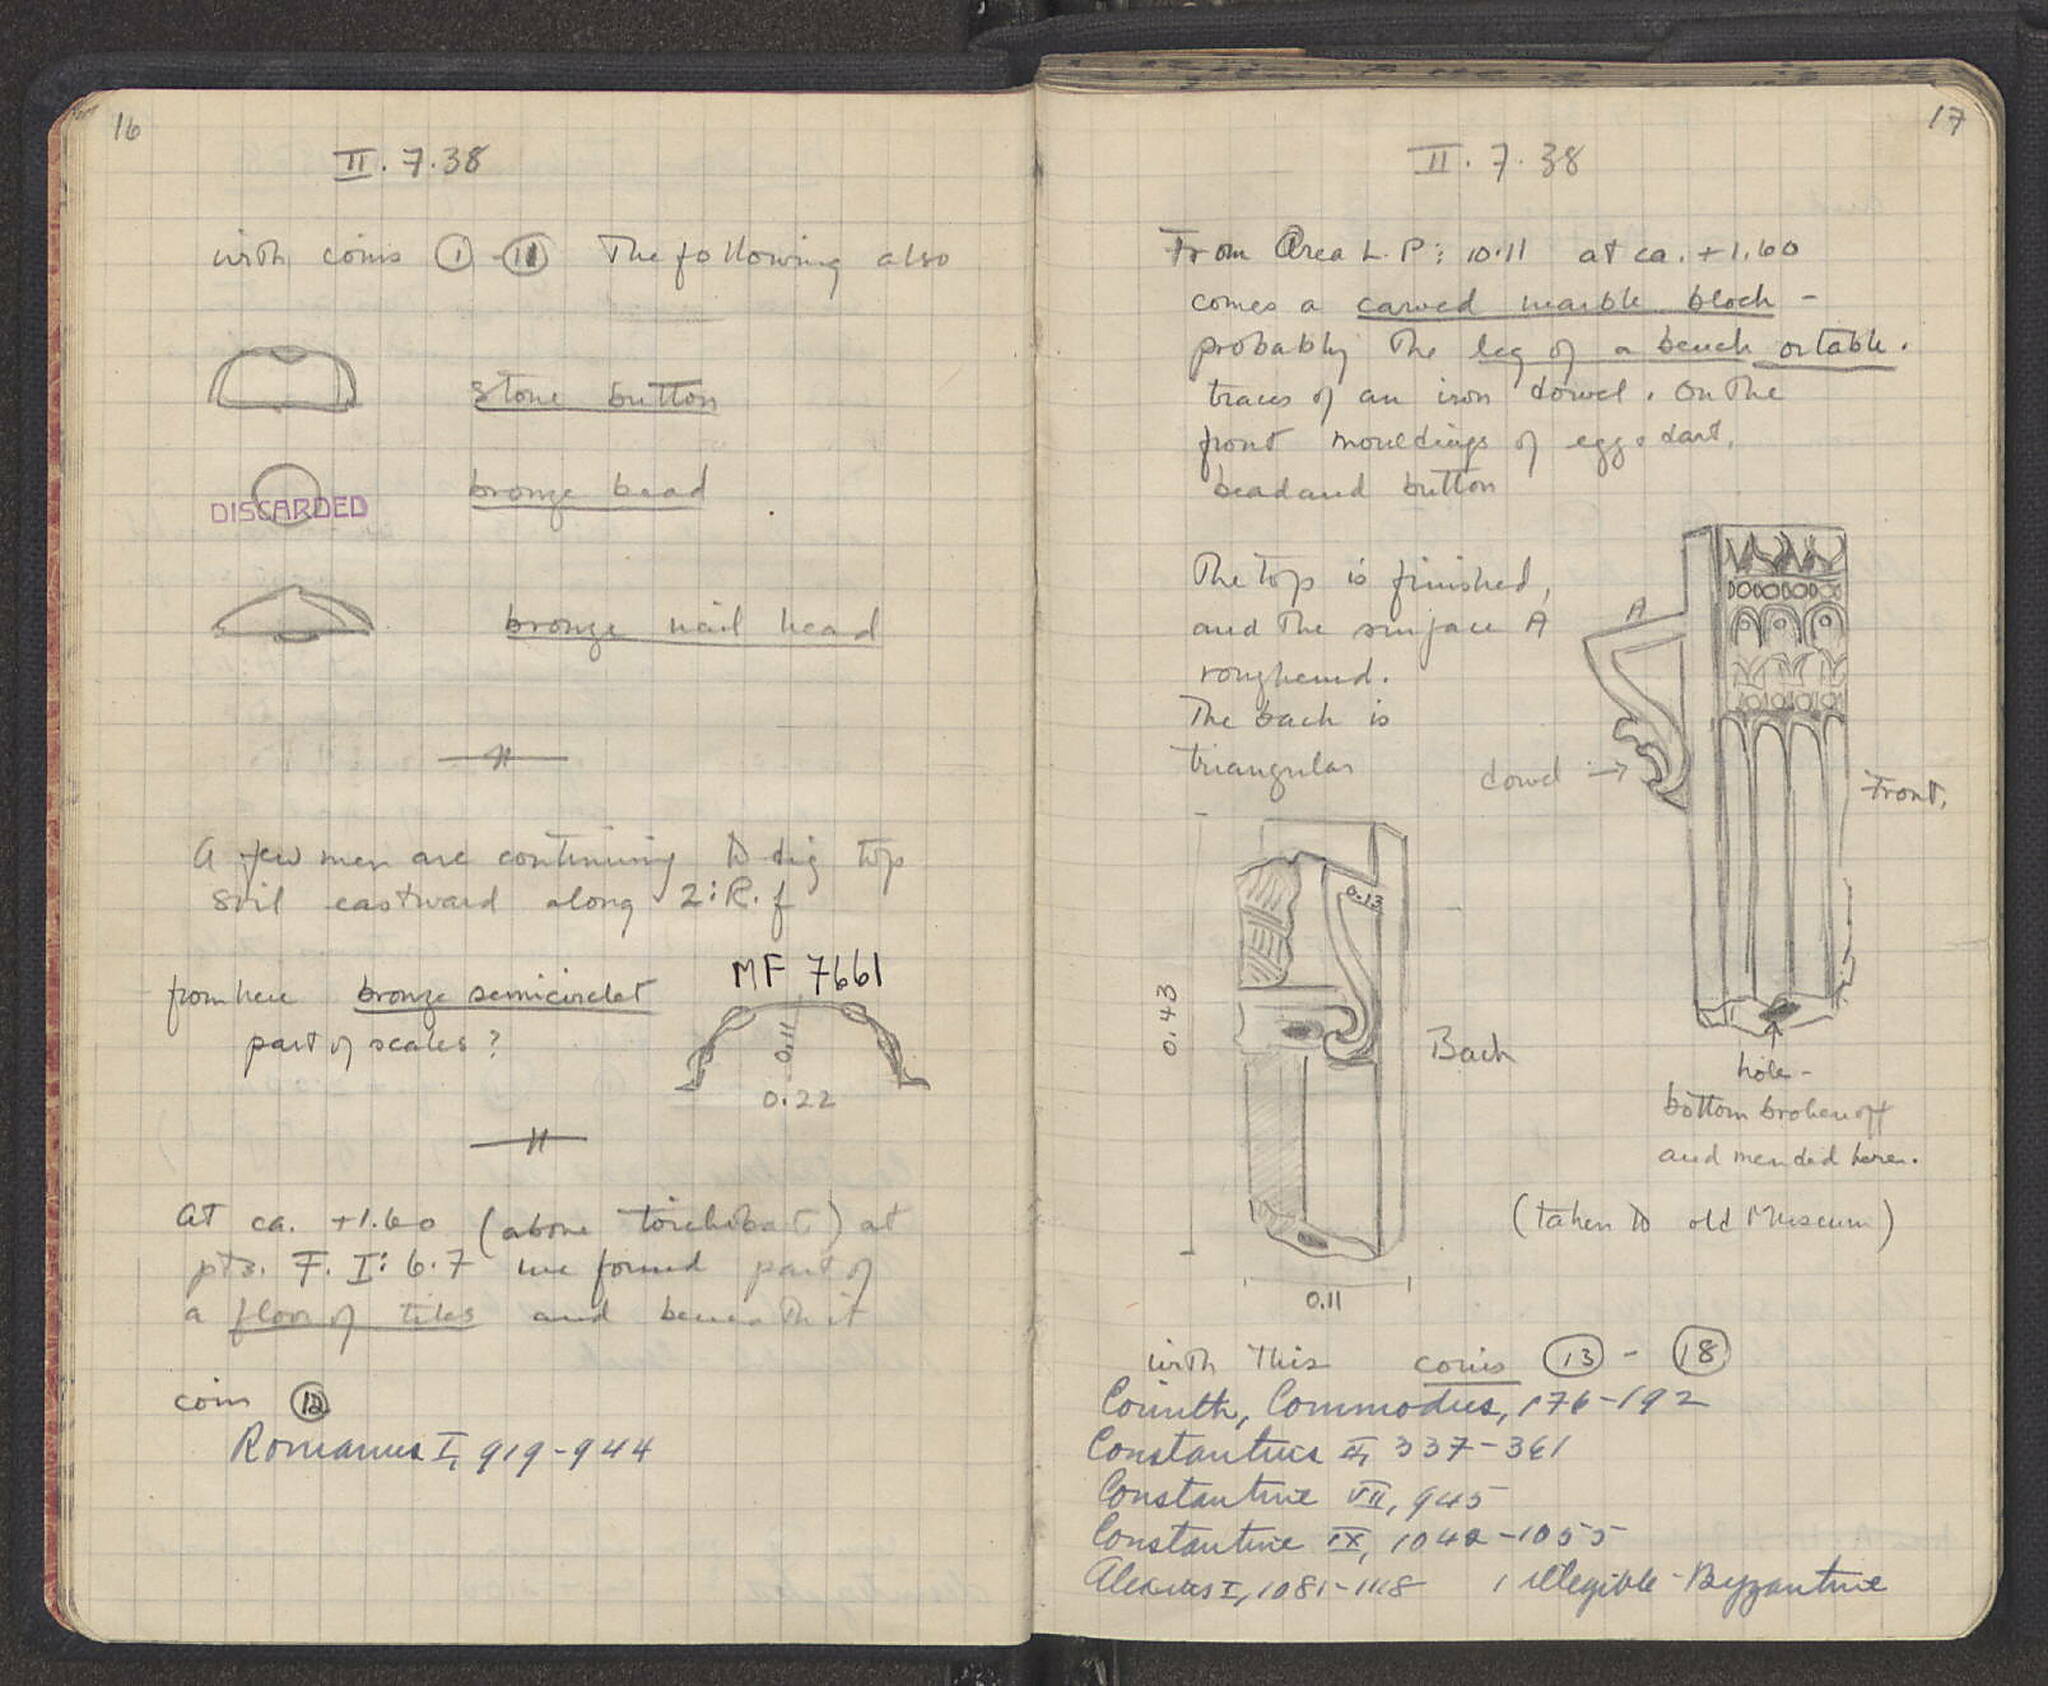 16
II. 7.38
with coins ① - ⑪ The following also
stone button
bronze bead
DISCARDED
bronze nail head
A few men are continuing to dig top
soil eastward along 2:R.f
MF 7661
from here bronze semicirclet
part of scales?
0.11
0.22
At ca. +1.60 (above ) at
pts. F. I: 6.7 we found part of
a floor of tiles and beneath it
coin ⑫
Romanus I, 919-944
17
II. 7. 38
From Area L. P: 10.11 at ca. +1.60
comes a carved marble block -
probably the leg of a bench or table.
traces of an iron dowel. On the
front mouldings of egg & dart,
bead and button
The top is finished,
and the surface A
roughened.
The back is
triangular
A
dowel →
Front.
0.13
0.43
Back
hole -
bottom broken off
and mended here.
(taken to old Museum)
0.11
with this coins ⑬ - ⑱
Corinth, Commodus, 176-192
Constantius II, 337-361
Constantine VII, 945
Constantine IX, 1042-1055
Alexius I, 1081-1118 1 illegible - Byzantine